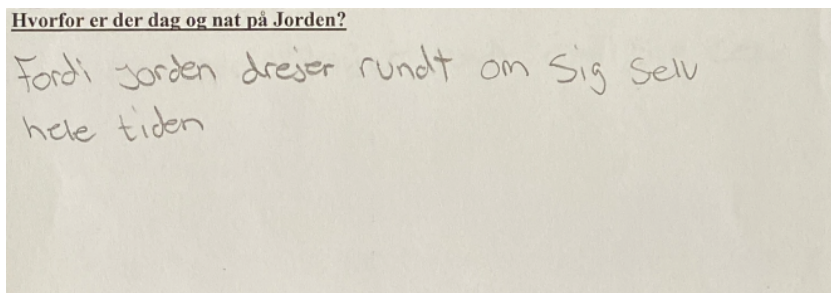 Hvorfor er der dag og nat på Jorden?
Fordi jorden drejer rundt om sig selv
hele tiden